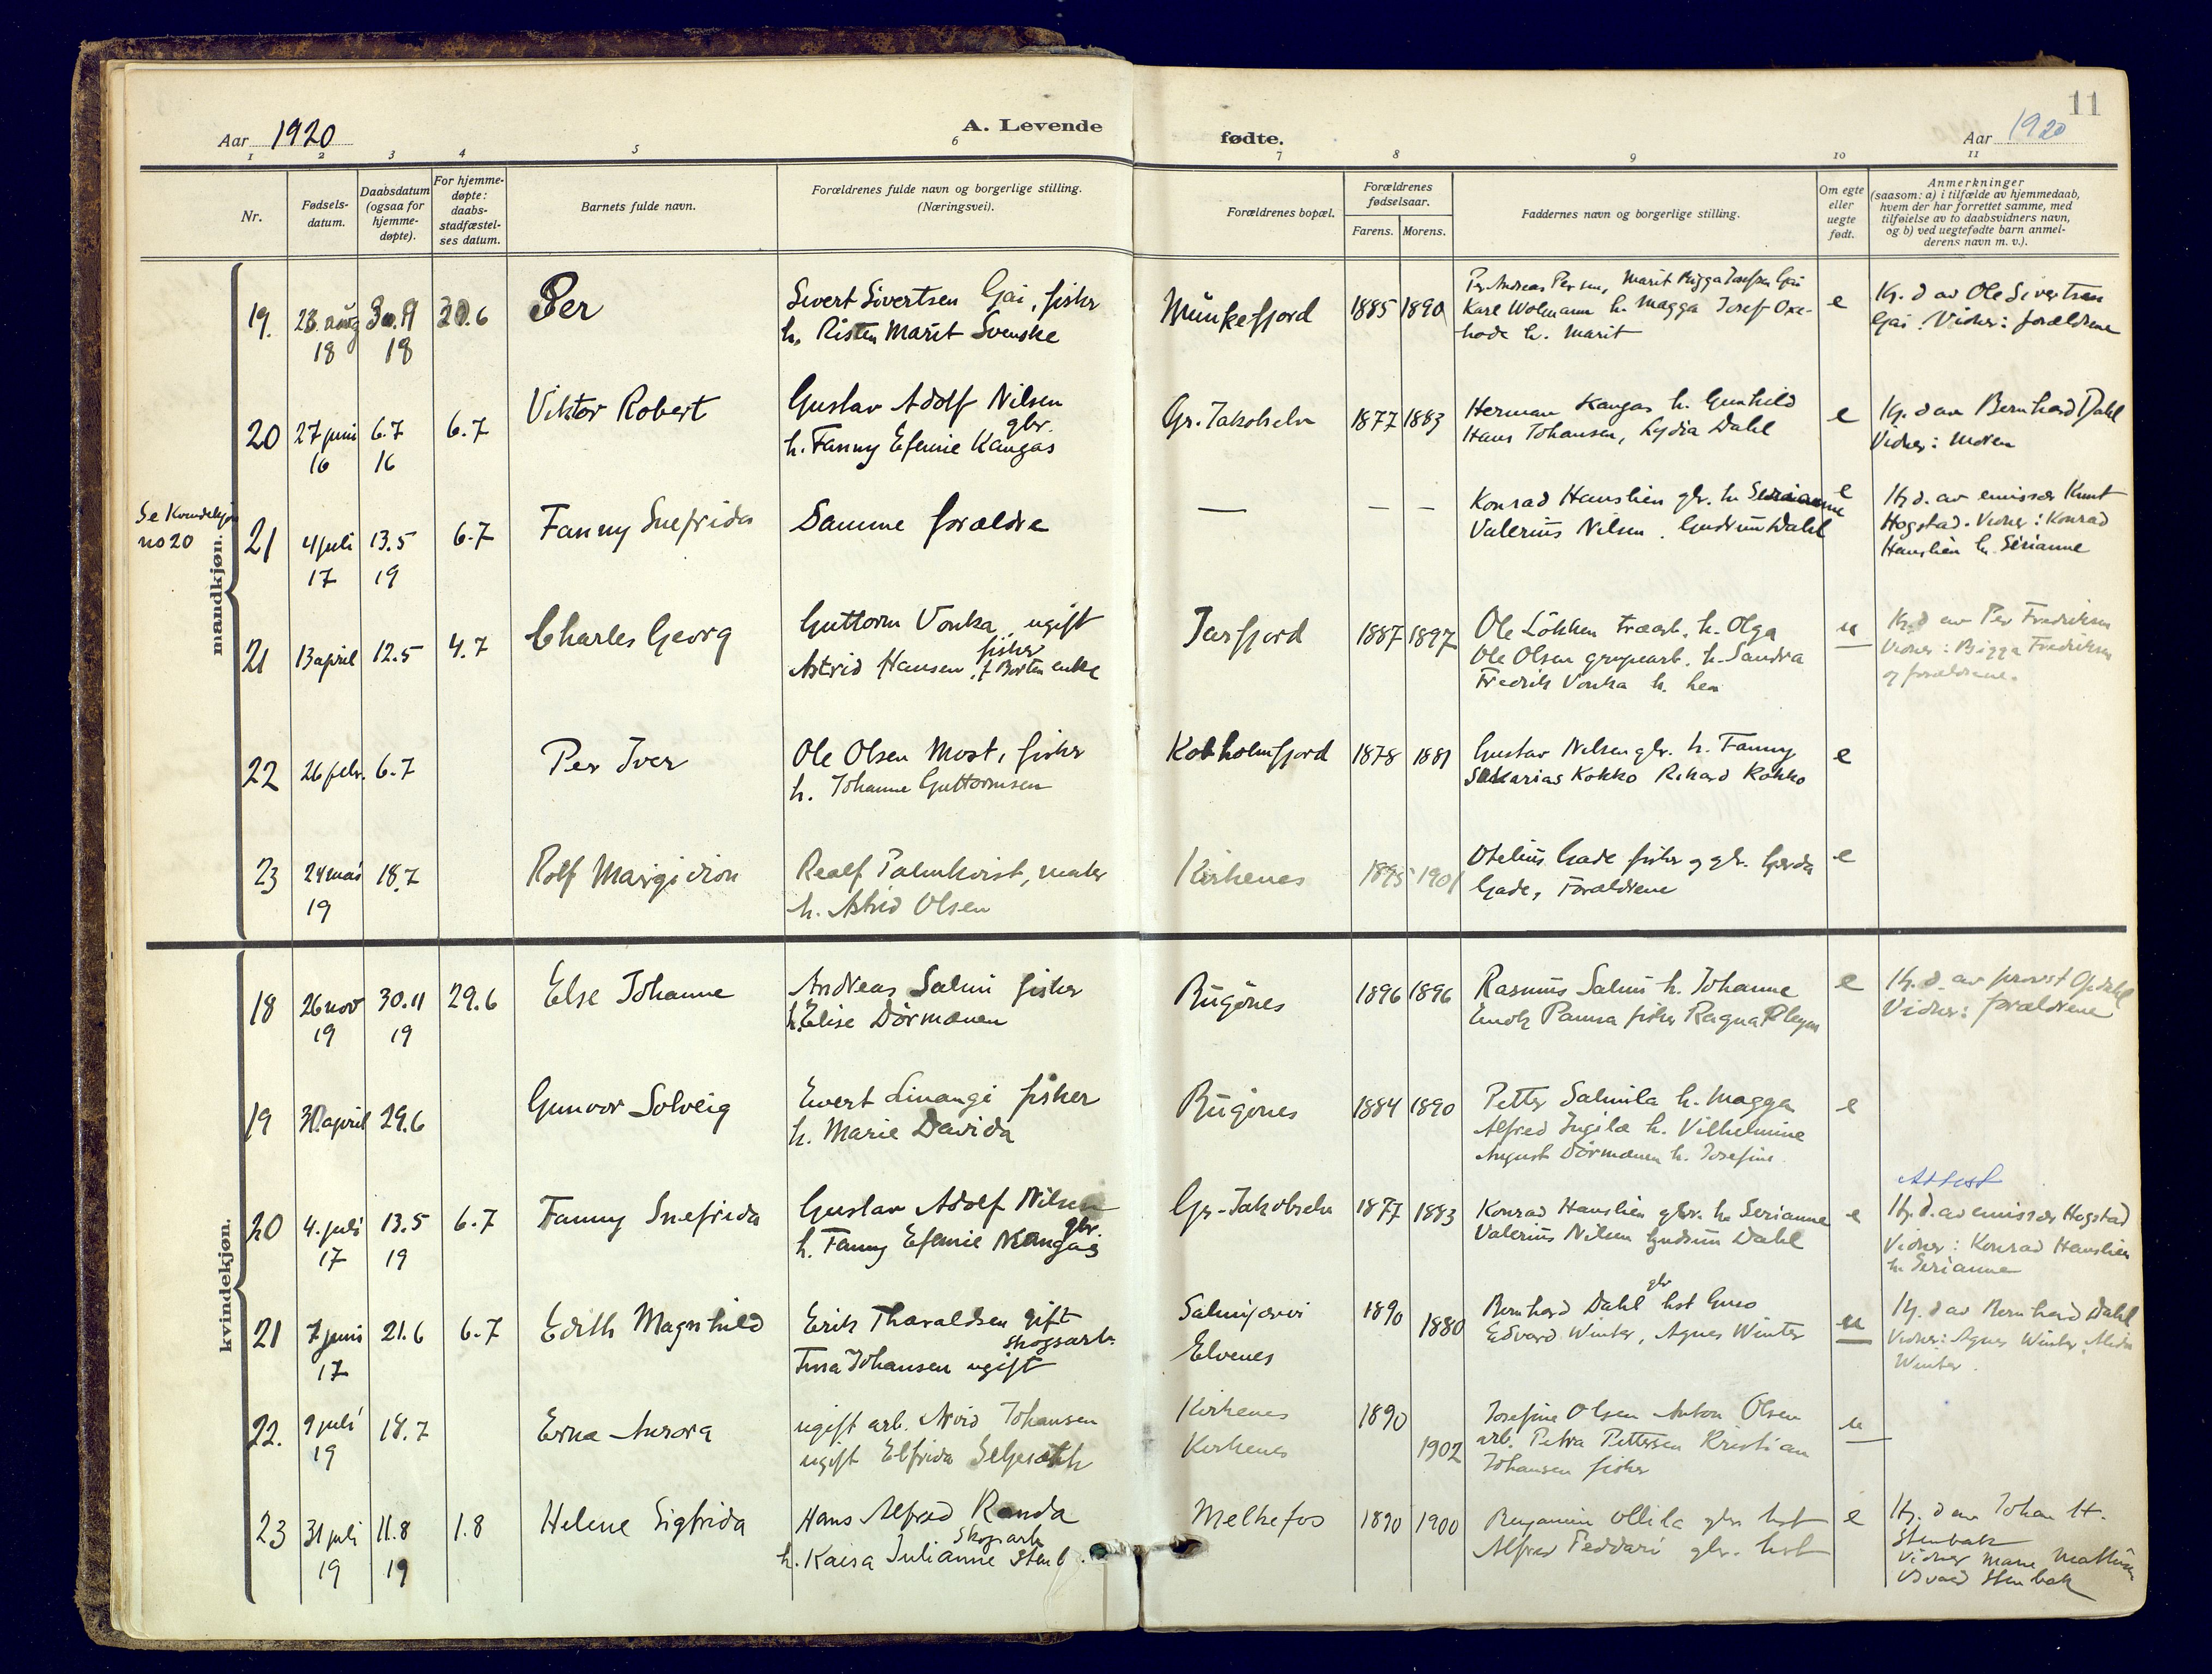 11
Aar 1920
A. Levende
fødte.
Aar 1920
1 2 3 4 5 6 7 8 9 10 11
Nr.
Fødsels-
datum.
Daabsdatum
(ogsaa for
hjemme-
døpte).
For hjemme-
døpte:
daabs-
stadfæstel-
ses datum.
Barnets fulde navn.
Forældrenes fulde navn og borgerlige stilling.
(Næringsvei).
Forældrenes bopæl.
Forældrenes
fødselsaar.
Farens. Morens.
Faddernes navn og borgerlige stilling.
Om egte
eller
uegte
født.
Anmerkninger
(saasom: a) i tilfælde av hjemmedaab,
hvem der har forrettet samme, med
tilføielse av to daabsvidners navn,
og b) ved uegtefødte barn anmel-
derens navn m. v.).
mandkjøn.
19. 23. aug 18 30.9 18 20.6
Per
Sivert Sivertsen Gai, fisker
h. Risten Marit Svenske
Munkefjord
1885 1890
Per Andreas Persen, Marit Bigga Josefsen Gai
Karl Wolmann h. Magga Josef Oxe-
hode h. Marit
e
Hj. d av Ole Sivertsen
Gai. Vidner: forældrene
20 27 juni 16 6.7 16 6.7
Viktor Robert
Gustav Adolf Nilsen
gbr.
h. Fanny Efenie Kangas
Gr. Jakobselv
1877 1883
Herman Kangas h. Gunhild
Hans Johansen, Lydia Dahl
e
Hj. d av Bernhard Dahl
Vidner: moren
Se Kvindekjøn
no 20
21 4 juli 17 13.5 19 6.7
Fanny Snefrida
Samme forældre
— — —
Konrad Hanslien gbr. h. Serianne
Valerius Nilsen. Gudrun Dahl
e
Hj d. av emissær Knut
Hogstad. Vidner: Konrad
Hanslien h. Serianne
21 13 april 12.5 4.7
Charles Georg
Guttorm Vonka, ugift
fisker
Astrid Hansen f. Borten enke
Jarfjord
1887 1897
Ole Løkken træarb. h. Olga
Ole Olsen grupearb. h. Sandra
Fredrik Vonka h. hen
u
Hj. d av Per Fredriksen
Vidner: Bigga Fredriksen
og forældrene.
22 26 febr. 6.7
Per Iver
Ole Olsen Most, fisker
h. Johanne Guttormsen
Kobholmfjord
1878 1881
Gustav Nilsen gbr. h. Fanny
Sakarias Kokko Rikard Kokko
e
23 24 mai 19 18.7
Rolf
Realf Palmkvist, maler
h. Astrid Olsen
Kirkenes
1895 1901
Otelius Gade fisker og gbr. Gerda
Gade, Forældrene
e
kvindekjøn.
18 26 nov 19 30.11 19 29.6
Else Johanne
Andreas Salmi fisker
h. Elise Dørmænen
Bugønes
1896 1896
Rasmus Salmi h. Johanne
Enok Pausa fisker Ragna Pleym
e
Hj. d. av provst Opdahl
Vidner: forældrene
19 30 april 29.6
Gunvor Solveig
Evert Linangi fisker
h. Marie Davida
Bugønes
1884 1890
Petter Salmila h. Magga
Alfred Ingilæ h. Vilhelmine
August Dørmænen h. Josefine
e
20 4. juli 17 13.5 19 6.7
Fanny Snefrida
Gustav Adolf Nilsen
gbr.
h. Fanny Efenie Kangas
Gr. Jakobselv
1877 1883
Konrad Hanslien gbr. h. Serianne
Valerius Nilsen Gudrun Dahl
e
Attest
Hj. d. av emissær Hogstad
Vidner: Konrad Hanslien
h. Serianne
21 7 juni 17 21.6 6.7
Edith Magnhild
Erik Tharaldsen gift
skogsarb.
Tina Johansen ugift
Salmijærvi
Elvenes
1890 1880
Bernhard Dahl gbr hst Guro
Edvard Winter, Agnes Winter
u
Hj. d av Bernhard Dahl
Vidner: Agnes Winter,
Winter.
22. 9 juli 19 18.7
Erna Aurora
ugift arb. Arvid Johansen
ugift Elfrida
Kirkenes
Kirkenes
1890 1902
Josefine Olsen Anton Olsen
arb. Petra Pettersen Kristian
Johansen fisker
u
23 31 juli 19 11.8 19 1.8
Helene Sigfrida
Hans Alfred Randa
Skogsarb
h. Kaisa Julianne Stenb.
Melkefos
1890 1900
Benjamin Ollila gbr hst
Alfred Peddari gbr. hst
e
Hj. d av Johan H.
Stenbak
Vidner Marie Mathisen
Stenbak